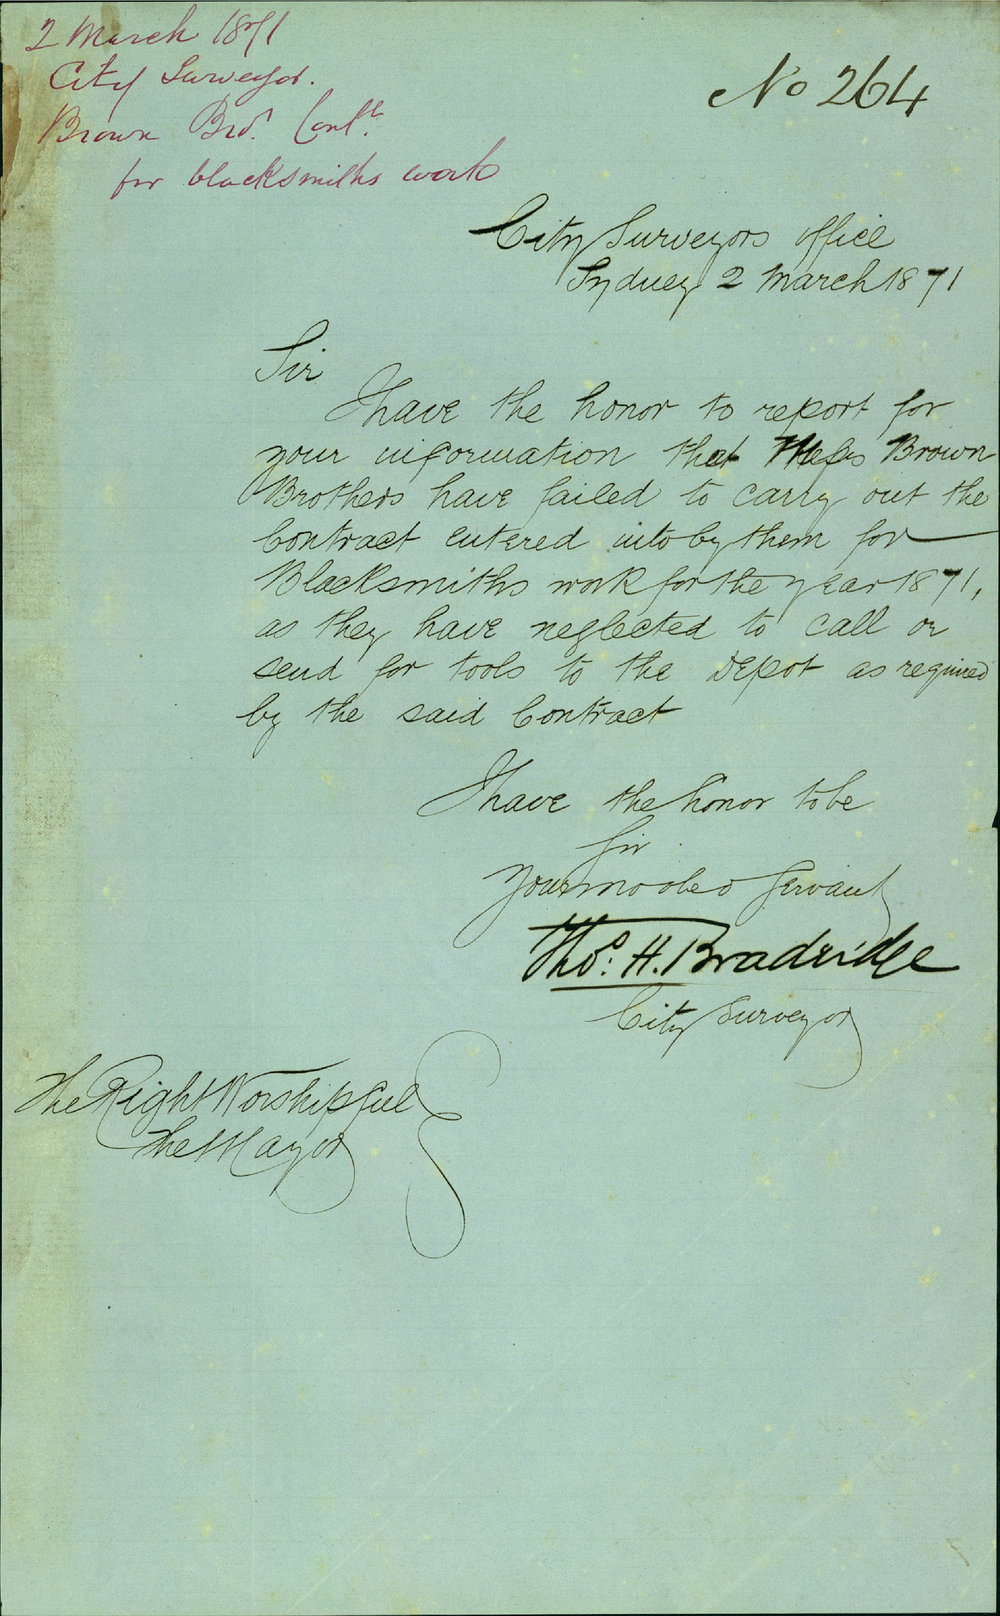 2 March 1871
City Surveyor.
Brown Bros. Contr.
for blacksmiths work
No 264
City Surveyors office
Sydney 2 March 1871
Sir
I have the honor to report for
your information that Messrs Brown
Brothers have failed to carry out the
Contract entered into by them for
Blacksmiths work for the year 1871,
as they have neglected to call or
send for tools to the Depot as required
by the said Contract
I have the honor to be
Sir
Your mo obed Servant
Thos. H. Bradridge
City Surveyor
The Right Worshipful
The Mayor